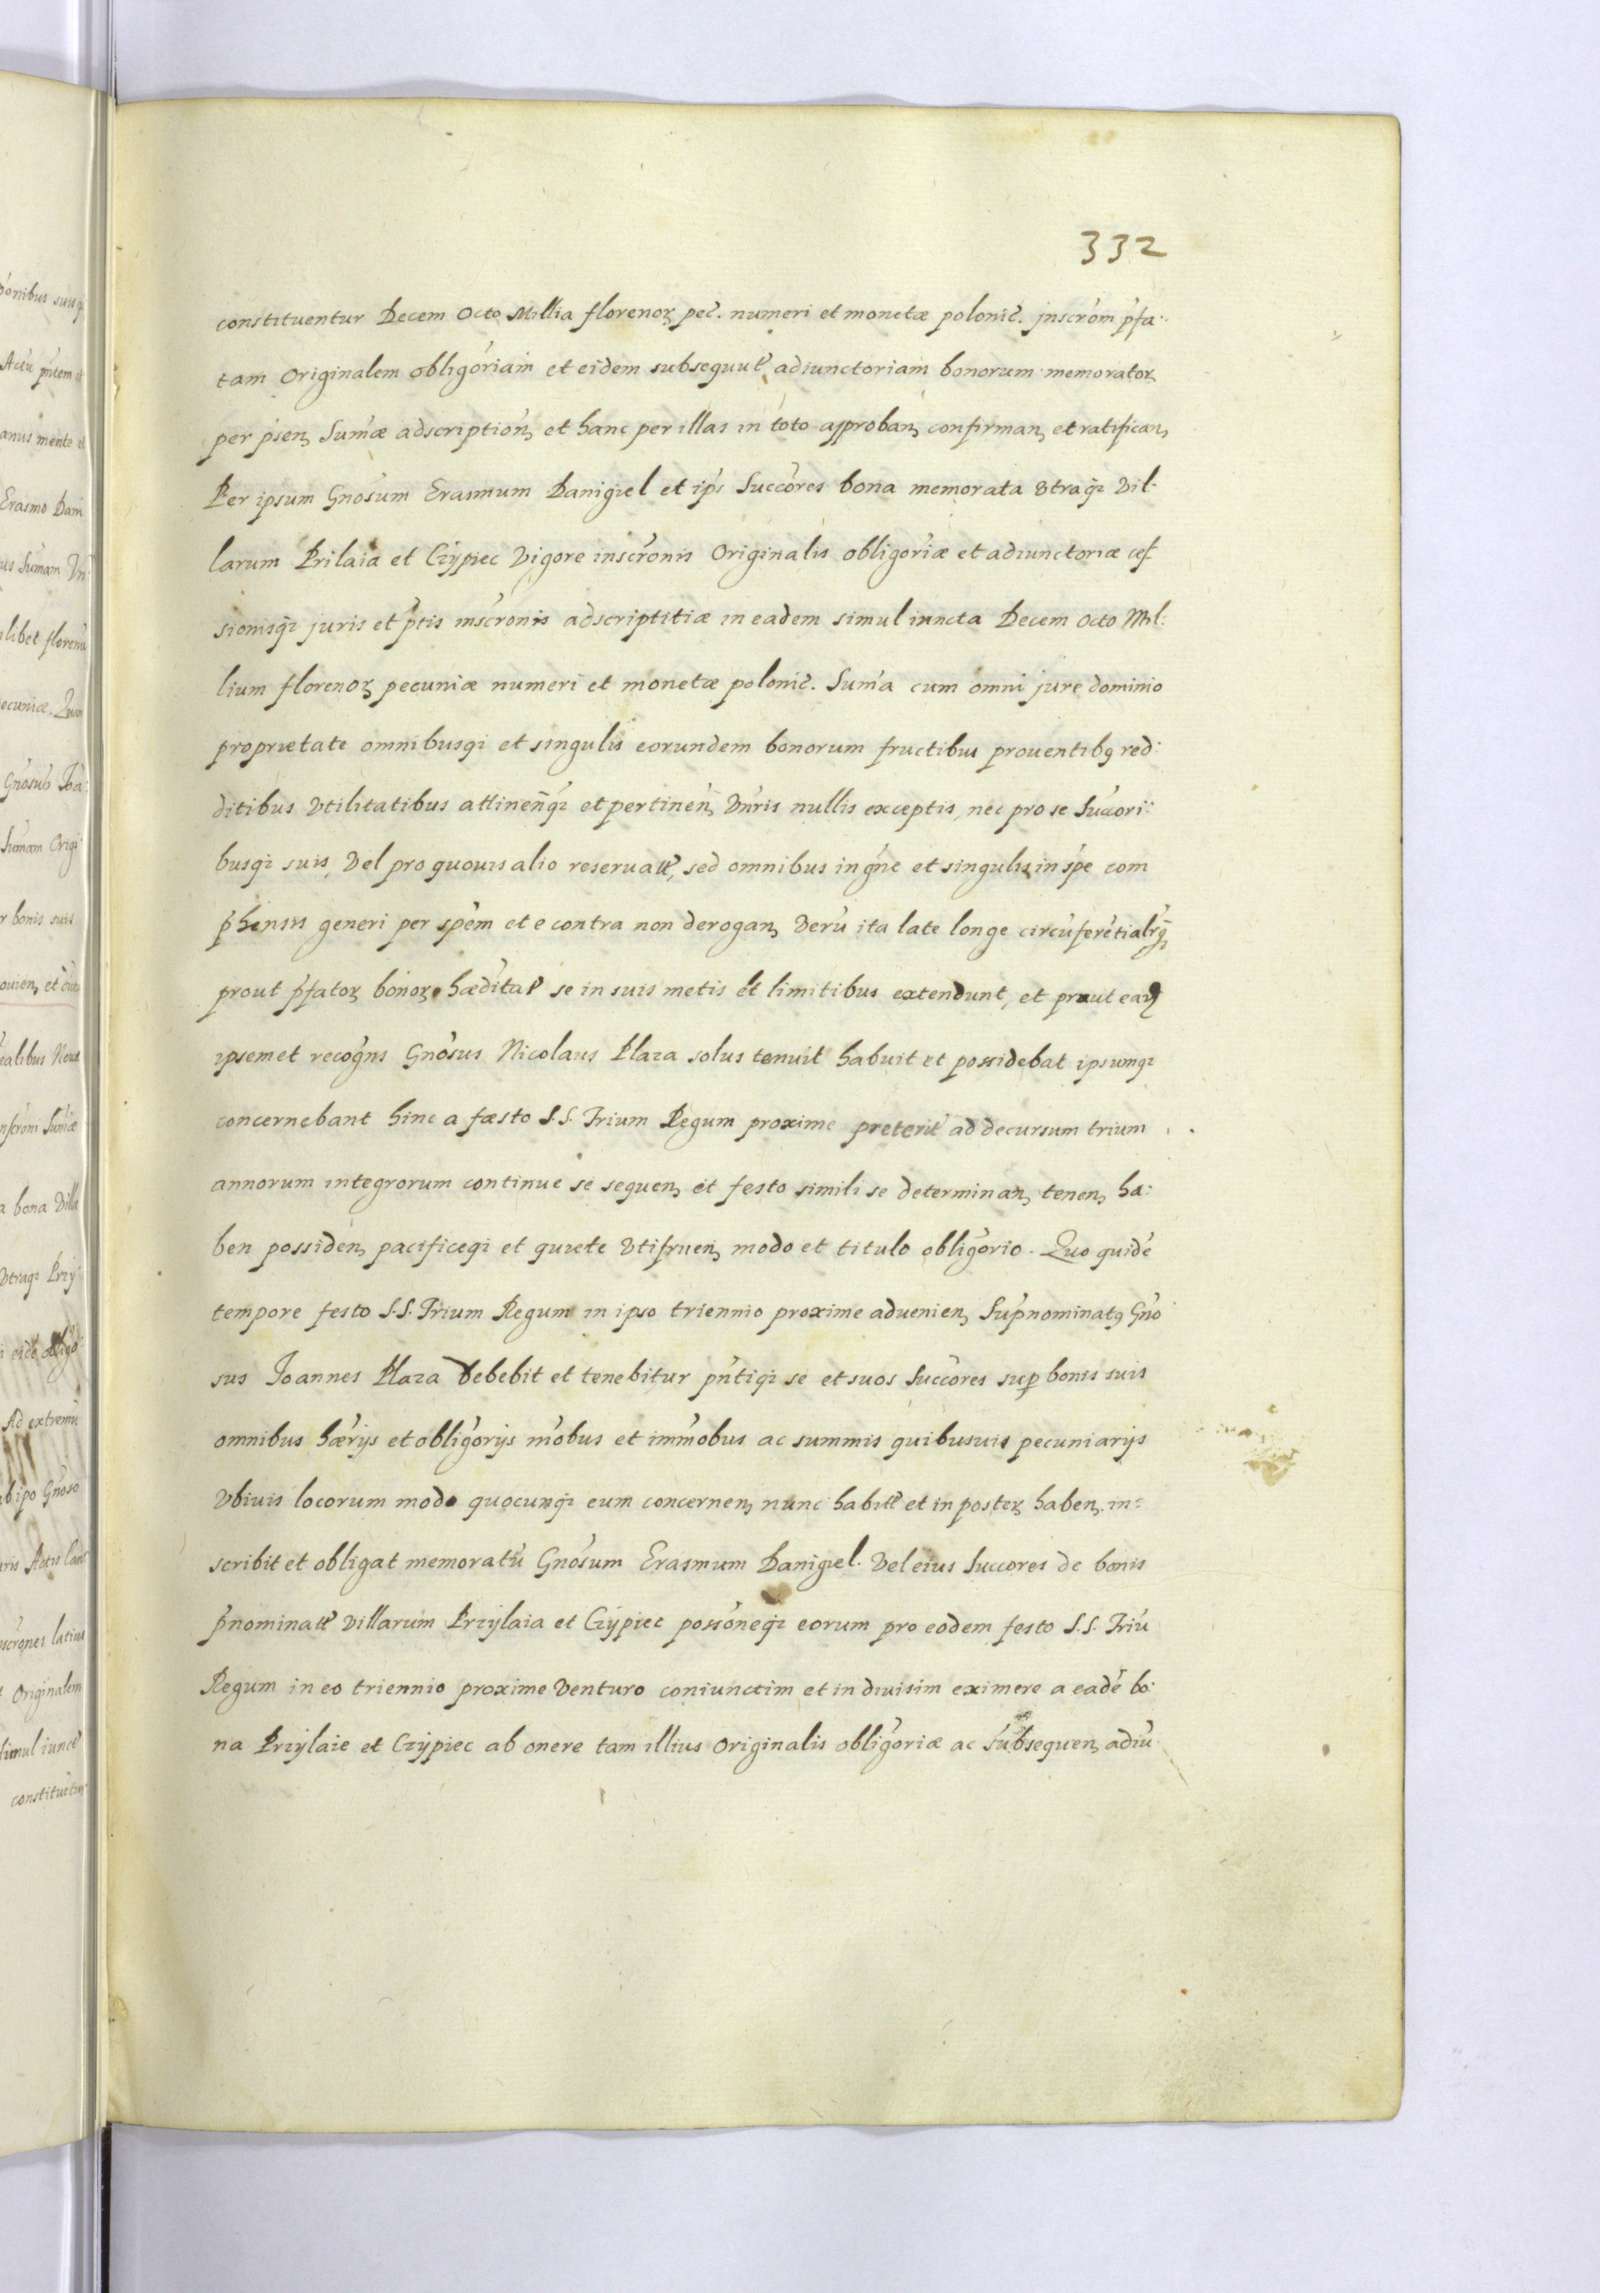 332
constituentur Decem Octo Millia florenoꝝ pec̃. numeri et monetæ polonic̃. jnscrõm p̃fa:
tam Originalem obligõriam et eidem subsequuẽ adiunctoriam bonorum memoratoꝝ
per p̃sen, Sum̃æ adscription, et hanc per illas in toto approban, confirman, et ratifican,
Per ipsum Gnõsum Erasmum Danigiel et ip̃s Succõres bona memorata Vtraq̃ȝ Vil:
larum Prilaia et Czÿpiec Vigore inscrõnis Originalis obligõriæ et adiunctoriæ ces
sionisqȝ juris et p̃tis inscrõnis adscriptitiæ in eadem simul iuncta Decem Octo Mil:
lium florenoꝝ pecuniæ numeri et monetæ polonic̃. Sum̃a cum omni jure dominio
proprietate omnibusqȝ et singulis eorundem bonorum fructibus prouentibꝰ red:
ditibus Vtilitatibus attinen̄qȝ et pertinen̄, Vnr̃is nullis exceptis, nec pro se Succori:
busqȝ suis, Vel pro quouis alio reseruatẽ, sed omnibus in gñe et singulis in sp̃e com
p̃hensis generi per spẽm et e contra non derogan, Verũ ita late longe circũferẽtialrq̃ȝ
prout p̃fatoꝝ bonoꝝ hæditaẽ se in suis metis et limitibus extendunt, et prout eaꝝ
ipsemet recogñs Gnõsus Nicolaus Plaza solus tenuit habuit et possidebat ipsumqȝ
concernebant hinc a fæsto S.S. Trium Regum proxime preteriẽ ad decursum trium
annorum integrorum continue se sequen, et festo simili se determinan, tenen, ha:
ben possiden, pacificeqȝ et quiete Vtifruen, modo et titulo obligõrio. Quo quidẽ
tempore festo S.S. Trium Regum in ipso triennio proxime aduenien, Sup̃nominatꝰ Gño
sus Joannes Plaza debebit et tenebitur pñtiqȝ se et suos Succõres suꝑ bonis suis
omnibus hæ̃rijs et obligõrijs mõbus et immõbus ac summis quibusuis pecuniarijs
Vbiuis locorum modo quocunqȝ eum concernen, nunc habitẽ et in posteꝝ haben, in:
scribit et obligat memoratũ Gnõsum Erasmum Danigiel. Vel eius Succores de bonis
p̃nominatẽ Villarum Przÿlaia et Czÿpiec possõneqȝ eorum pro eodem festo S.S. Triũ
Regum in eo triennio proxime Venturo coniunctim et in diuisim eximere a eadẽ bo:
na Przÿlaie et Czÿpiec ab onere tam illius Originalis obligõriæ ac subsequen, adiũ